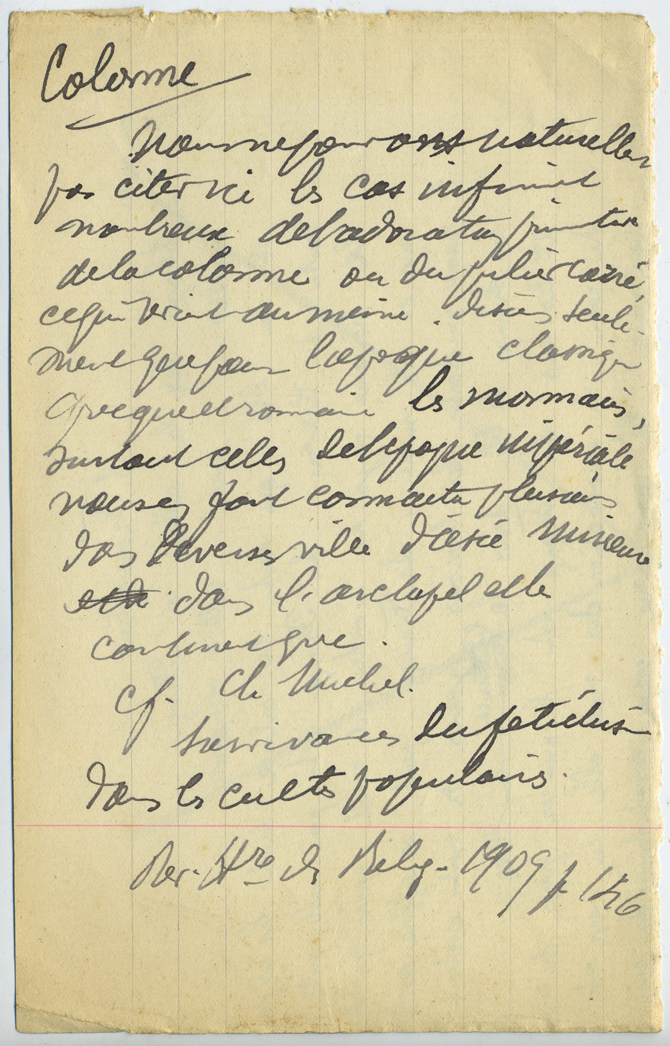 Colonne
Nous ne pouvons naturelle
pas citer ici les cas infinit
nombreux de l'adoration primitive
de la colonne ou du pilier carré,
ce qui revient au même. Disons seule-
ment que pour l'époque classique
grecque et romaine les monnaies,
surtout celles de l'époque impériale
nous en font connaître plusieurs
dans diverses villes d'Asie Mineure
dans l'archipel et le
continent grec.
cf. Ch Michel.
Survivances du fétichisme
dans les cultes populaires.
Rev. Hre des Relig. 1909 p. 146